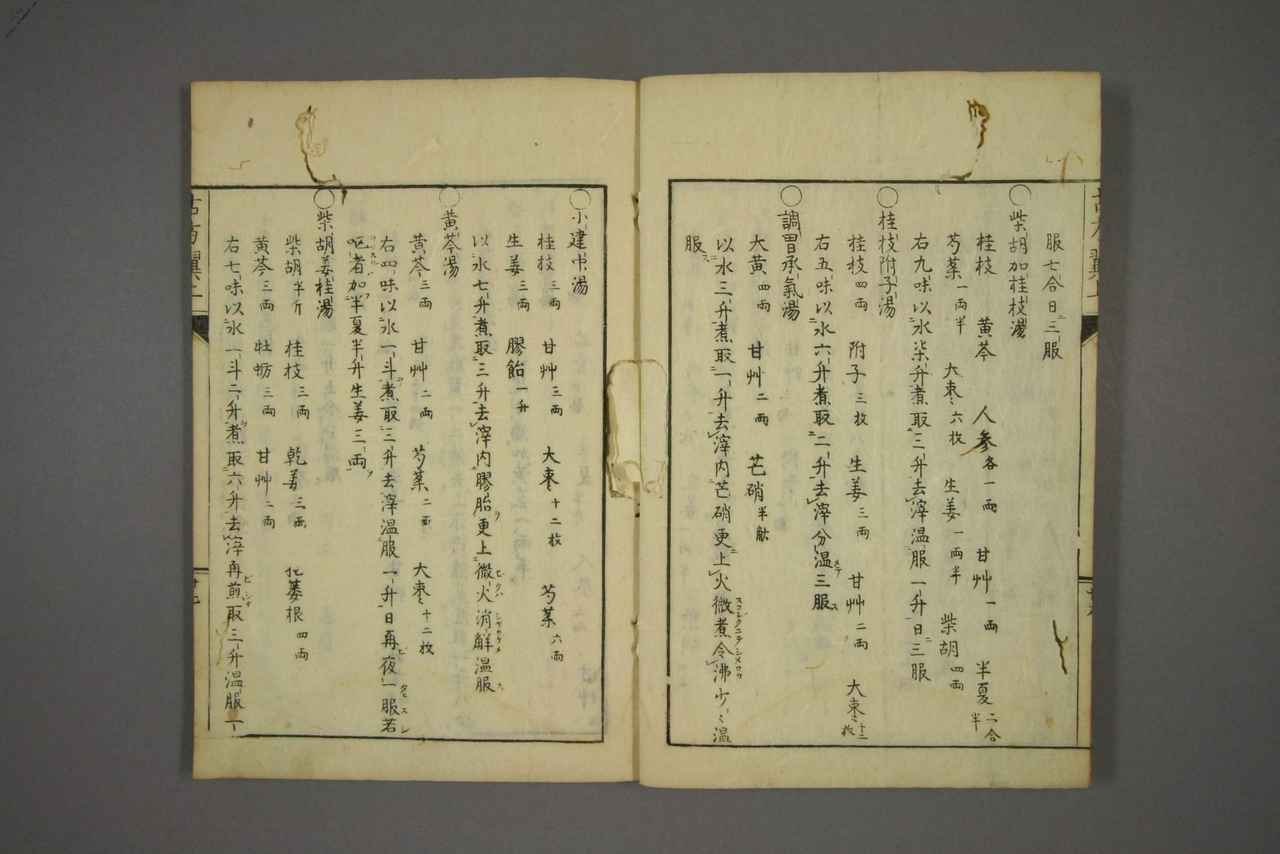 服七合日三服
柴胡加桂枝湯
桂枝 黄芩 人参各一両 甘艸一両 半夏二合半
芍薬一両半 大棗六枚 生姜一両半 柴胡四両
右九味以水柒升煮取三升去滓温服一升日三服
桂枝附子湯
桂枝四両 附子三枚 生姜三両 甘艸二両 大棗十二枚
右五味以水六升煮取二升去滓分温三服
調胃承氣湯
大黄四両 甘艸二両 芒硝半觔
以水三升煮取一升去滓内芒硝更上火微煮令沸少〻温
服
小建中湯
桂枝三両 甘艸三両 大棗十二枚 芍薬六両
生姜三両 膠飴一升
以水七升煮取三升去滓内膠飴更上微火消解温服
黄芩湯
黄芩三両 甘艸二両 芍薬二両 大棗十二枚
右四味以水一斗煮取三升去滓温服一升日再夜一服若
嘔者加半夏半升生姜三両
柴胡姜桂湯
柴胡半斤 桂枝三両 乾姜三両 蔞根四両
黄芩三両 牡蛎三両 甘艸二両
右七味以水一斗二升煮取六升去滓再煎取三升温服一
古方翼